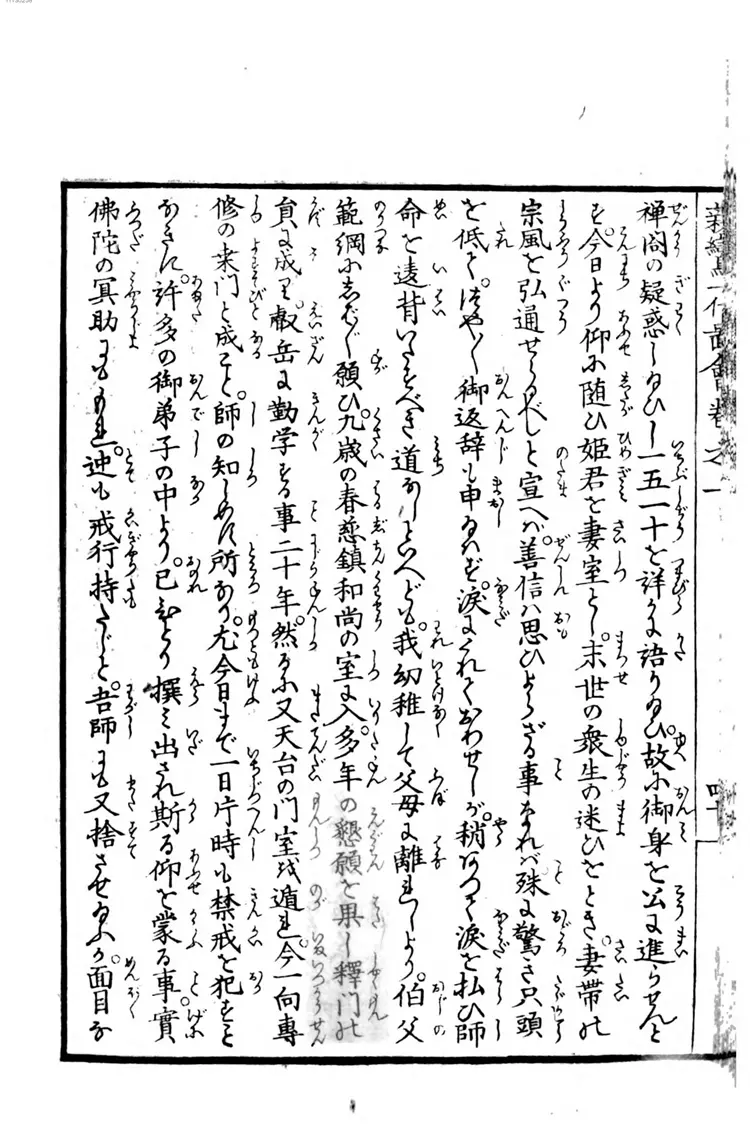 禅閤の疑惑しゐひし一五一十を詳に語りゐひ。故に御身を公に進らせんと
す。今日より仰に随ひ姫君を妻室とし。末世の衆生の迷ひをとき。妻帯の
宗風を弘通せらるべしと宣へバ。善信ハ思ひよらざる事なれバ。殊に驚き只頭
を低て。御返辞も申ゐハず。涙にくれておわせしが。稍ありて涙を払ひ師
命を遠背いたすべき道なしといへども。我幼稚して父母に離れしより。伯父
範綱に願ひ。九歳の春慈鎮和尚の室に入。多年の懇願を果し釋門の
員に成り。叡岳に勤学する事二十年。然るに又天台の門室を遁れ。今一向専
修の桒門と成こと。師の知しめす所なり。尤今日まで一日片時も禁戒を犯すこと
なきに。許多の御弟子の中より。己ひとり撰ミ出され斯る仰を蒙る事。實
佛陀の冥助にももれ。迚も戒行持たじと。吾師にも又捨させゐふか。面目な